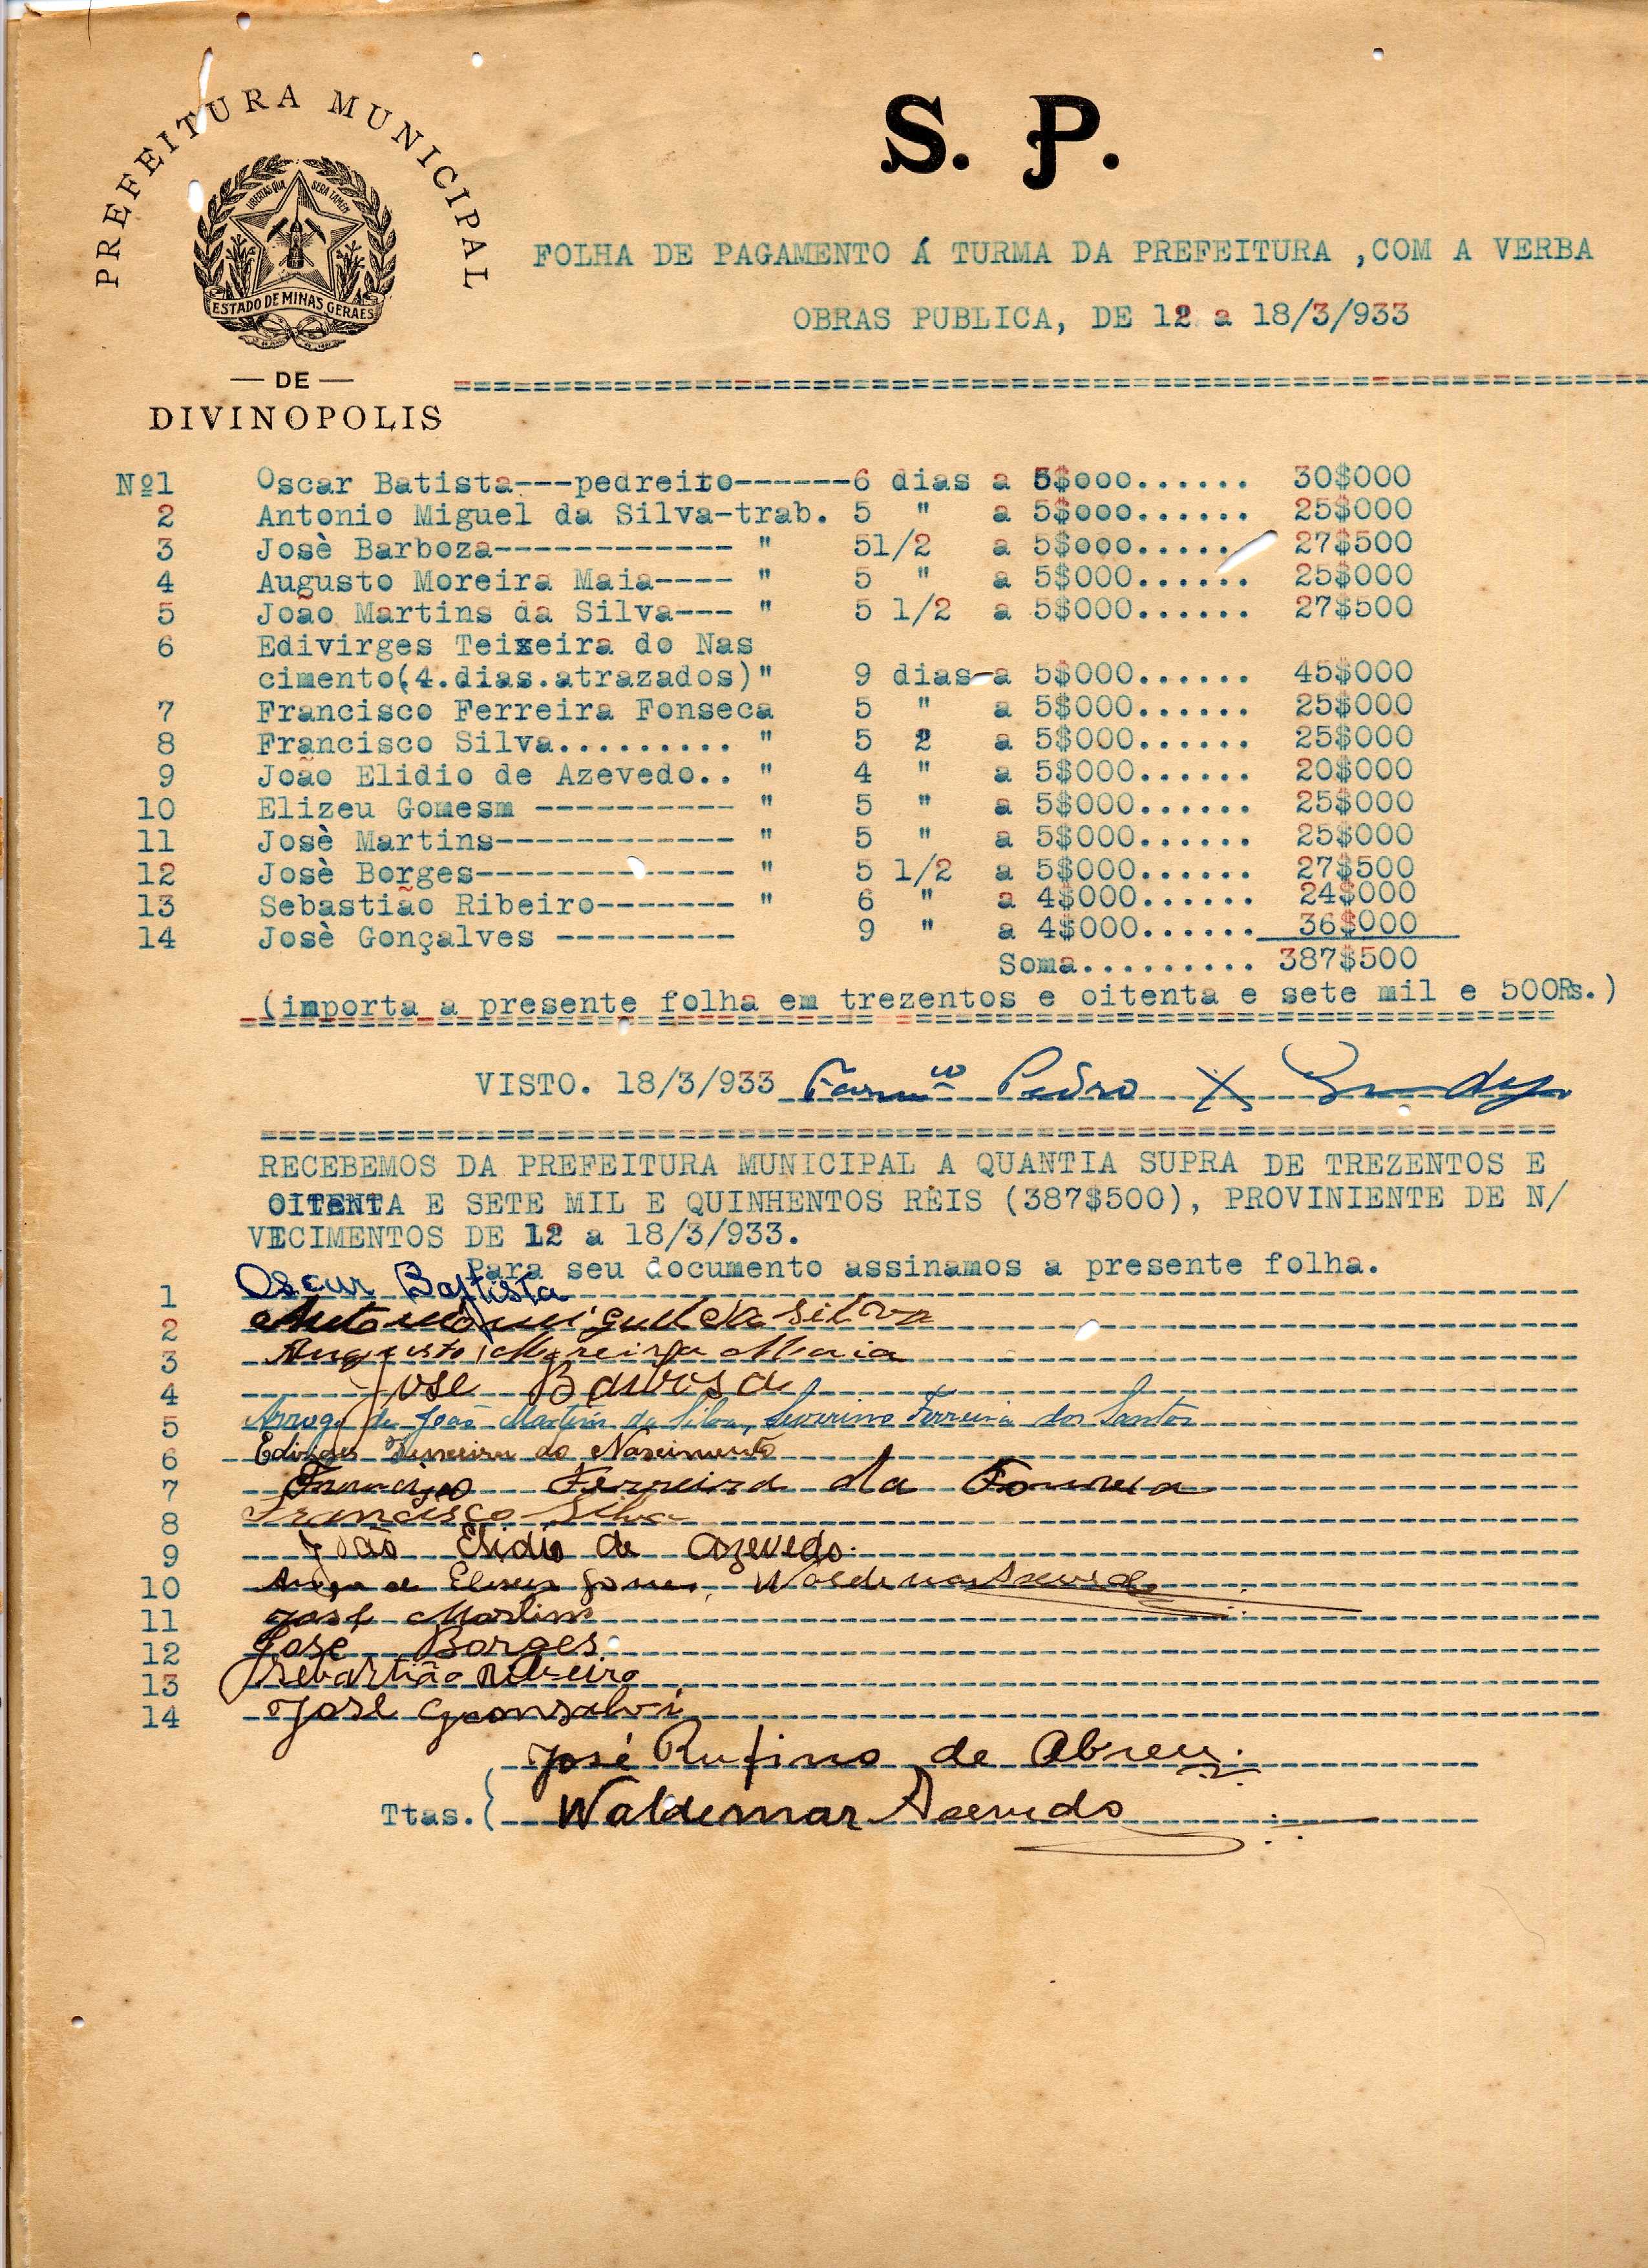 PREFEITURA MUNICIPAL
LIBERTAS QUÆ SERA TAMEN
ESTADO DE MINAS GERAES
— DE —
DIVINOPOLIS
S. P.
FOLHA DE PAGAMENTO Á TURMA DA PREFEITURA ,COM A VERBA
OBRAS PUBLICA, DE 12 a 18/3/933
Nº1 Oscar Batista---pedreiro------6 dias a 5$000...... 30$000
2 Antonio Miguel da Silva-trab. 5 " a 5$000...... 25$000
3 Josè Barboza------------ " 51/2 a 5$000..... 27$500
4 Augusto Moreira Maia---- " 5 " a 5$000...... 25$000
5 João Martins da Silva--- " 5 1/2 a 5$000...... 27$500
6 Edivirges Teixeira do Nas
cimento(4.dias.atrazados)" 9 dias-a 5$000...... 45$000
7 Francisco Ferreira Fonseca 5 " a 5$000...... 25$000
8 Francisco Silva......... " 5 2 a 5$000...... 25$000
9 João Elidio de Azevedo.. " 4 " a 5$000...... 20$000
10 Elizeu Gomesm ---------- " 5 " a 5$000...... 25$000
11 Josè Martins------------ " 5 " a 5$000...... 25$000
12 Josè Borges------------- " 5 1/2 a 5$000...... 27$500
13 Sebastião Ribeiro------- " 6 " a 4$000...... 24$000
14 Josè Gonçalves --------- 9 " a 4$000...... 36$000
Soma......... 387$500
(importa a presente folha em trezentos e oitenta e sete mil e 500Rs.)
VISTO. 18/3/933 Pedro X
RECEBEMOS DA PREFEITURA MUNICIPAL A QUANTIA SUPRA DE TREZENTOS E
OITENTA E SETE MIL E QUINHENTOS RÉIS (387$500), PROVINIENTE DE N/
VECIMENTOS DE 12 a 18/3/933.
Para seu documento assinamos a presente folha.
1 Oscar Baptista
2 Antonio miguel da silva
3 Augusto Moreira Maia
4 Jose Barbosa
5 Arrogo de João Martins da Silva, Severino Ferreira dos Santos
6 Edivirges Teixeira do Nascimento
7 Francisco Ferreira da Fonseca
8 Francisco Silva
9 João Elidio de Azevedo.
10 Arogo de Eliseu Gomes, Waldemar Azevedo
11 José Martins
12 Jose Borges
13 Sebastião Ribeiro
14 José Gonsalvi
José Rufino de Abreu.
Ttas. Waldemar Azevedo